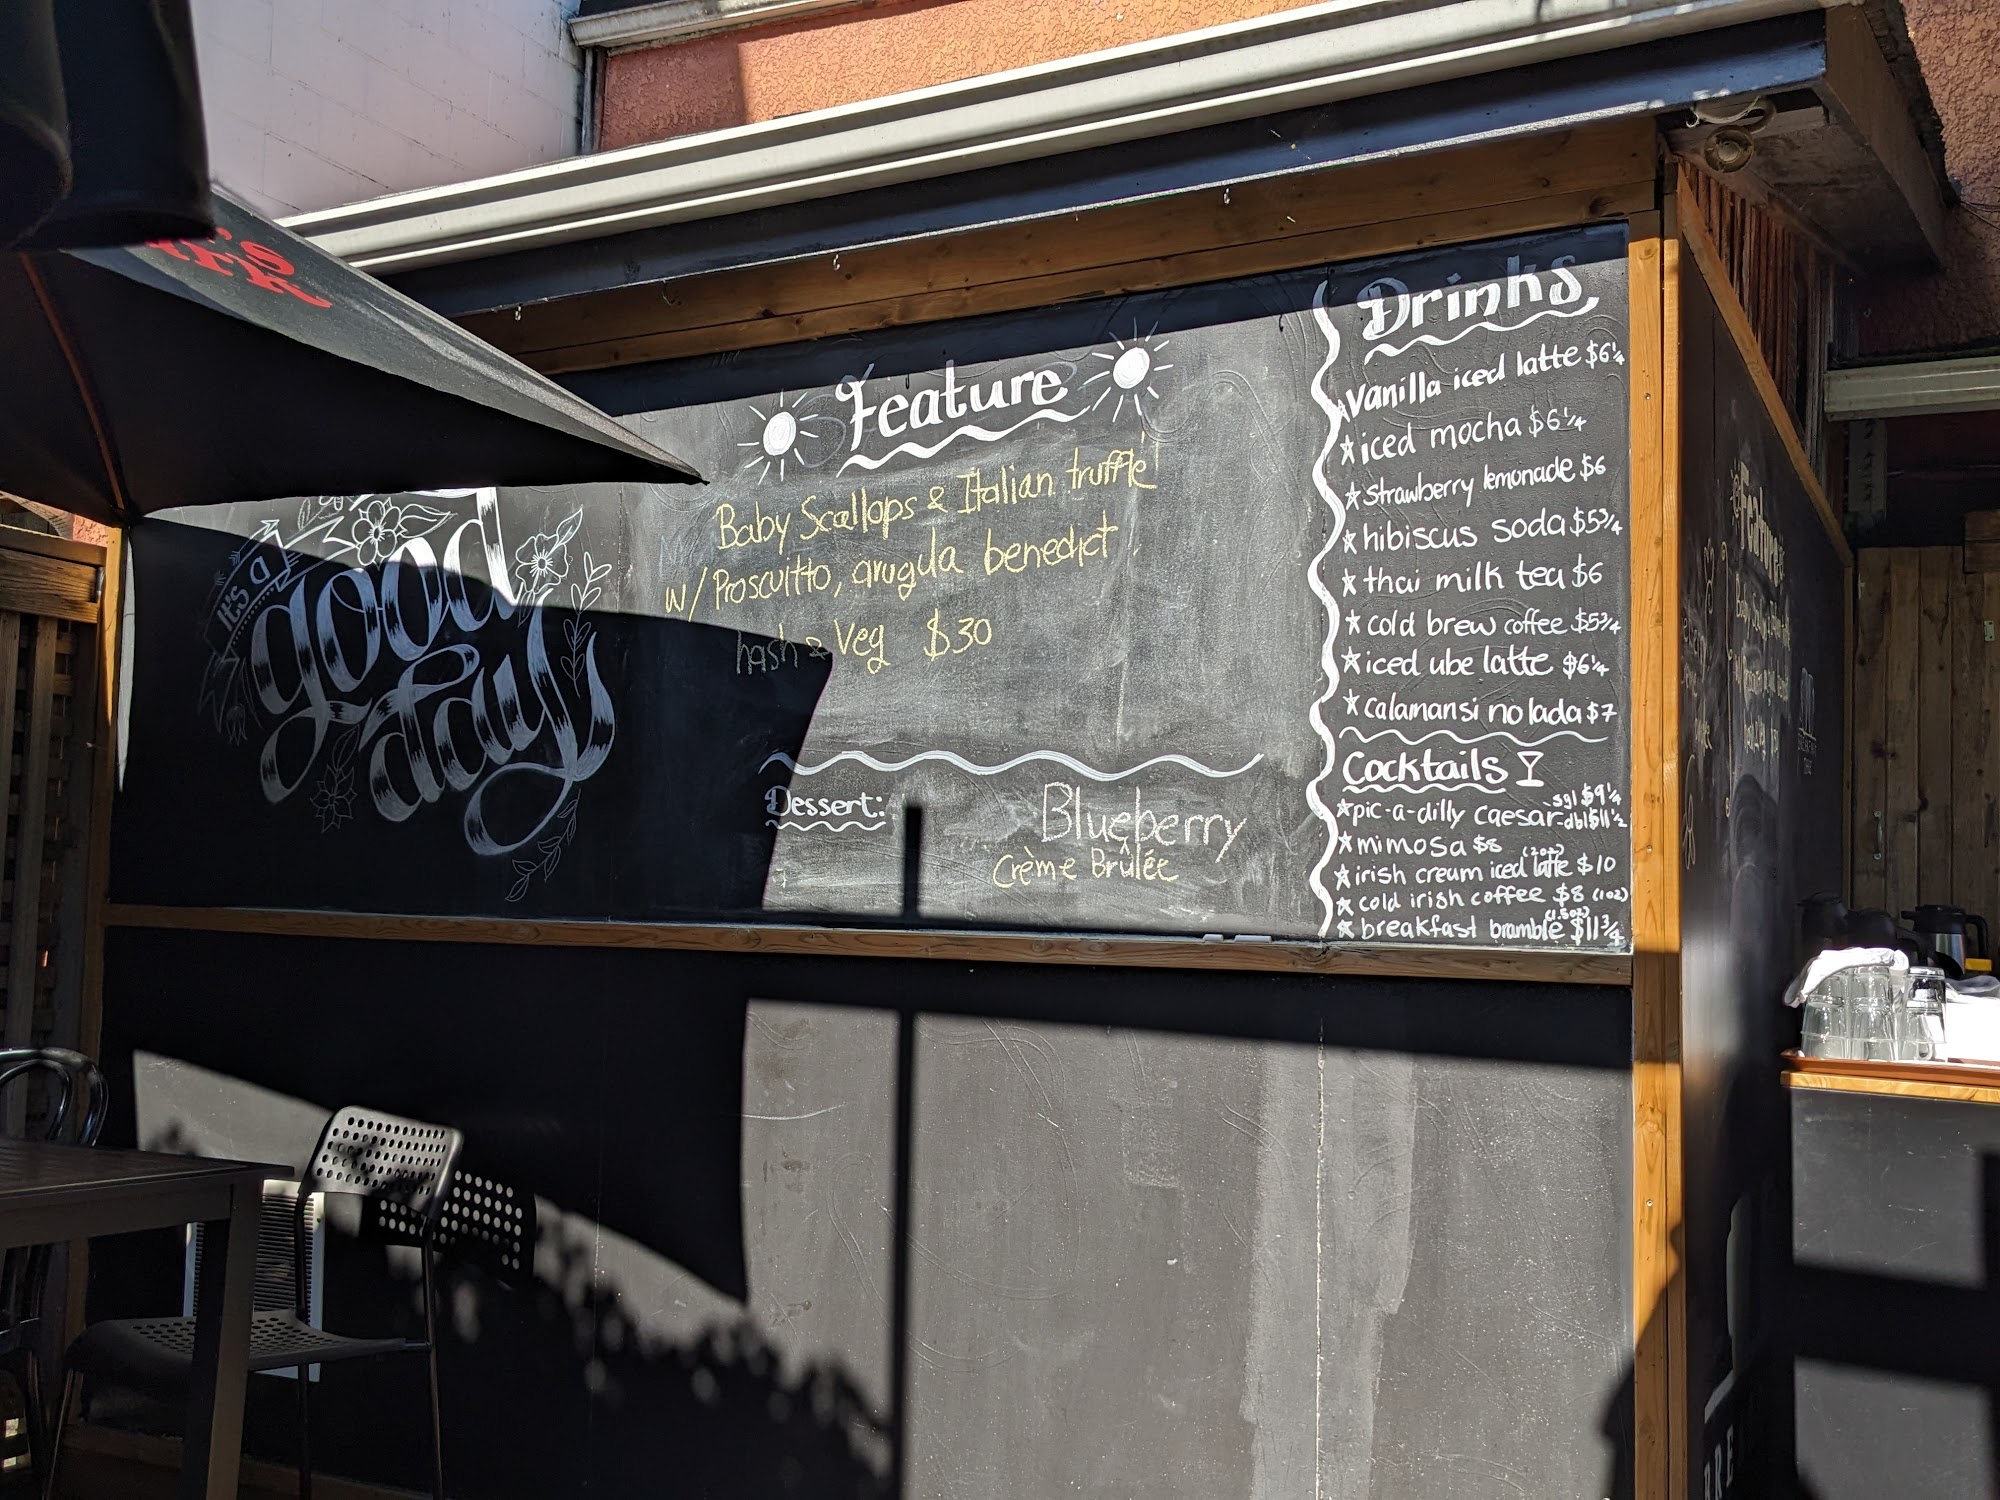 IT'S A
good
day
Feature
Baby Scallops & Italian truffle!
w/ Proscuitto, arugula benedict
hash & Veg $30
Dessert:
Blueberry
Crème Brûlée
Drinks
vanilla iced latte $6¼
iced mocha $6¼
strawberry lemonade $6
hibiscus soda $5¾
thai milk tea $6
cold brew coffee $5¾
iced ube latte $6¼
calamansi nolada $7
Cocktails
pic-a-dilly caesar sgl $9¼ dbl $11½
mimosa $8
irish cream iced latte (2oz) $10
cold irish coffee $8 (1oz)
breakfast bramble (1.5oz) $11¾
Feature